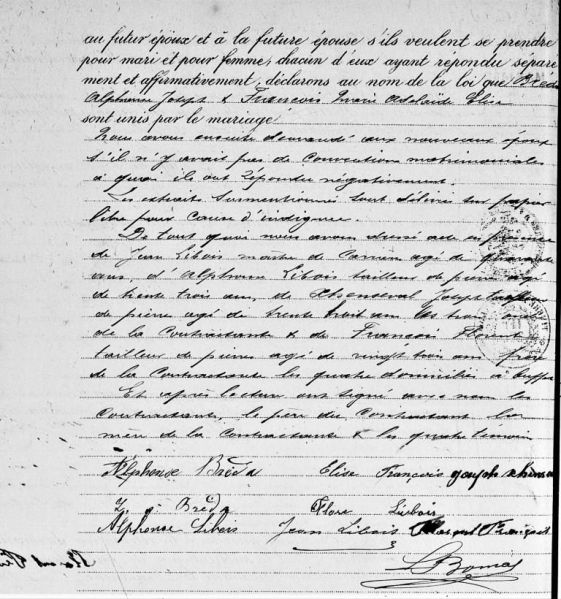 au futur époux et à la future épouse s'ils veulent se prendre
pour mari et pour femme, chacun d'eux ayant répondu séparé
ment et affirmativement, déclarons au nom de la loi que Bréda
Alphonse Joseph & François Marie Adelaïde Elise
sont unis par le mariage
Nous avons ensuite demandé aux nouveaux époux
s'il n'y avait pas de conventions matrimoniales
à quoi ils ont répondu négativement.
Les extraits susmentionnés sont délivrés sur papier
libre pour cause d'indigence.
De tout quoi nous avons dressé acte en présence
de Jean Libois maître de carrière agé de quarante
ans, d'Alphonse Libois tailleur de pierre agé
de trente trois ans, de Joseph
de pierre agé de trente huit ans les trois
de la contractante & de François Florent
tailleur de pierres agé de vingt trois ans frère
de la contractante les quatre domiciliés à
Et après lecture ont signé avec nous les
contractants, le père du contractant la
mère de la contractante & les quatre témoins
Alphonse Bréda Elise François
J. Bréda Flore Libois
Alphonse Libois Jean Libois Florent François